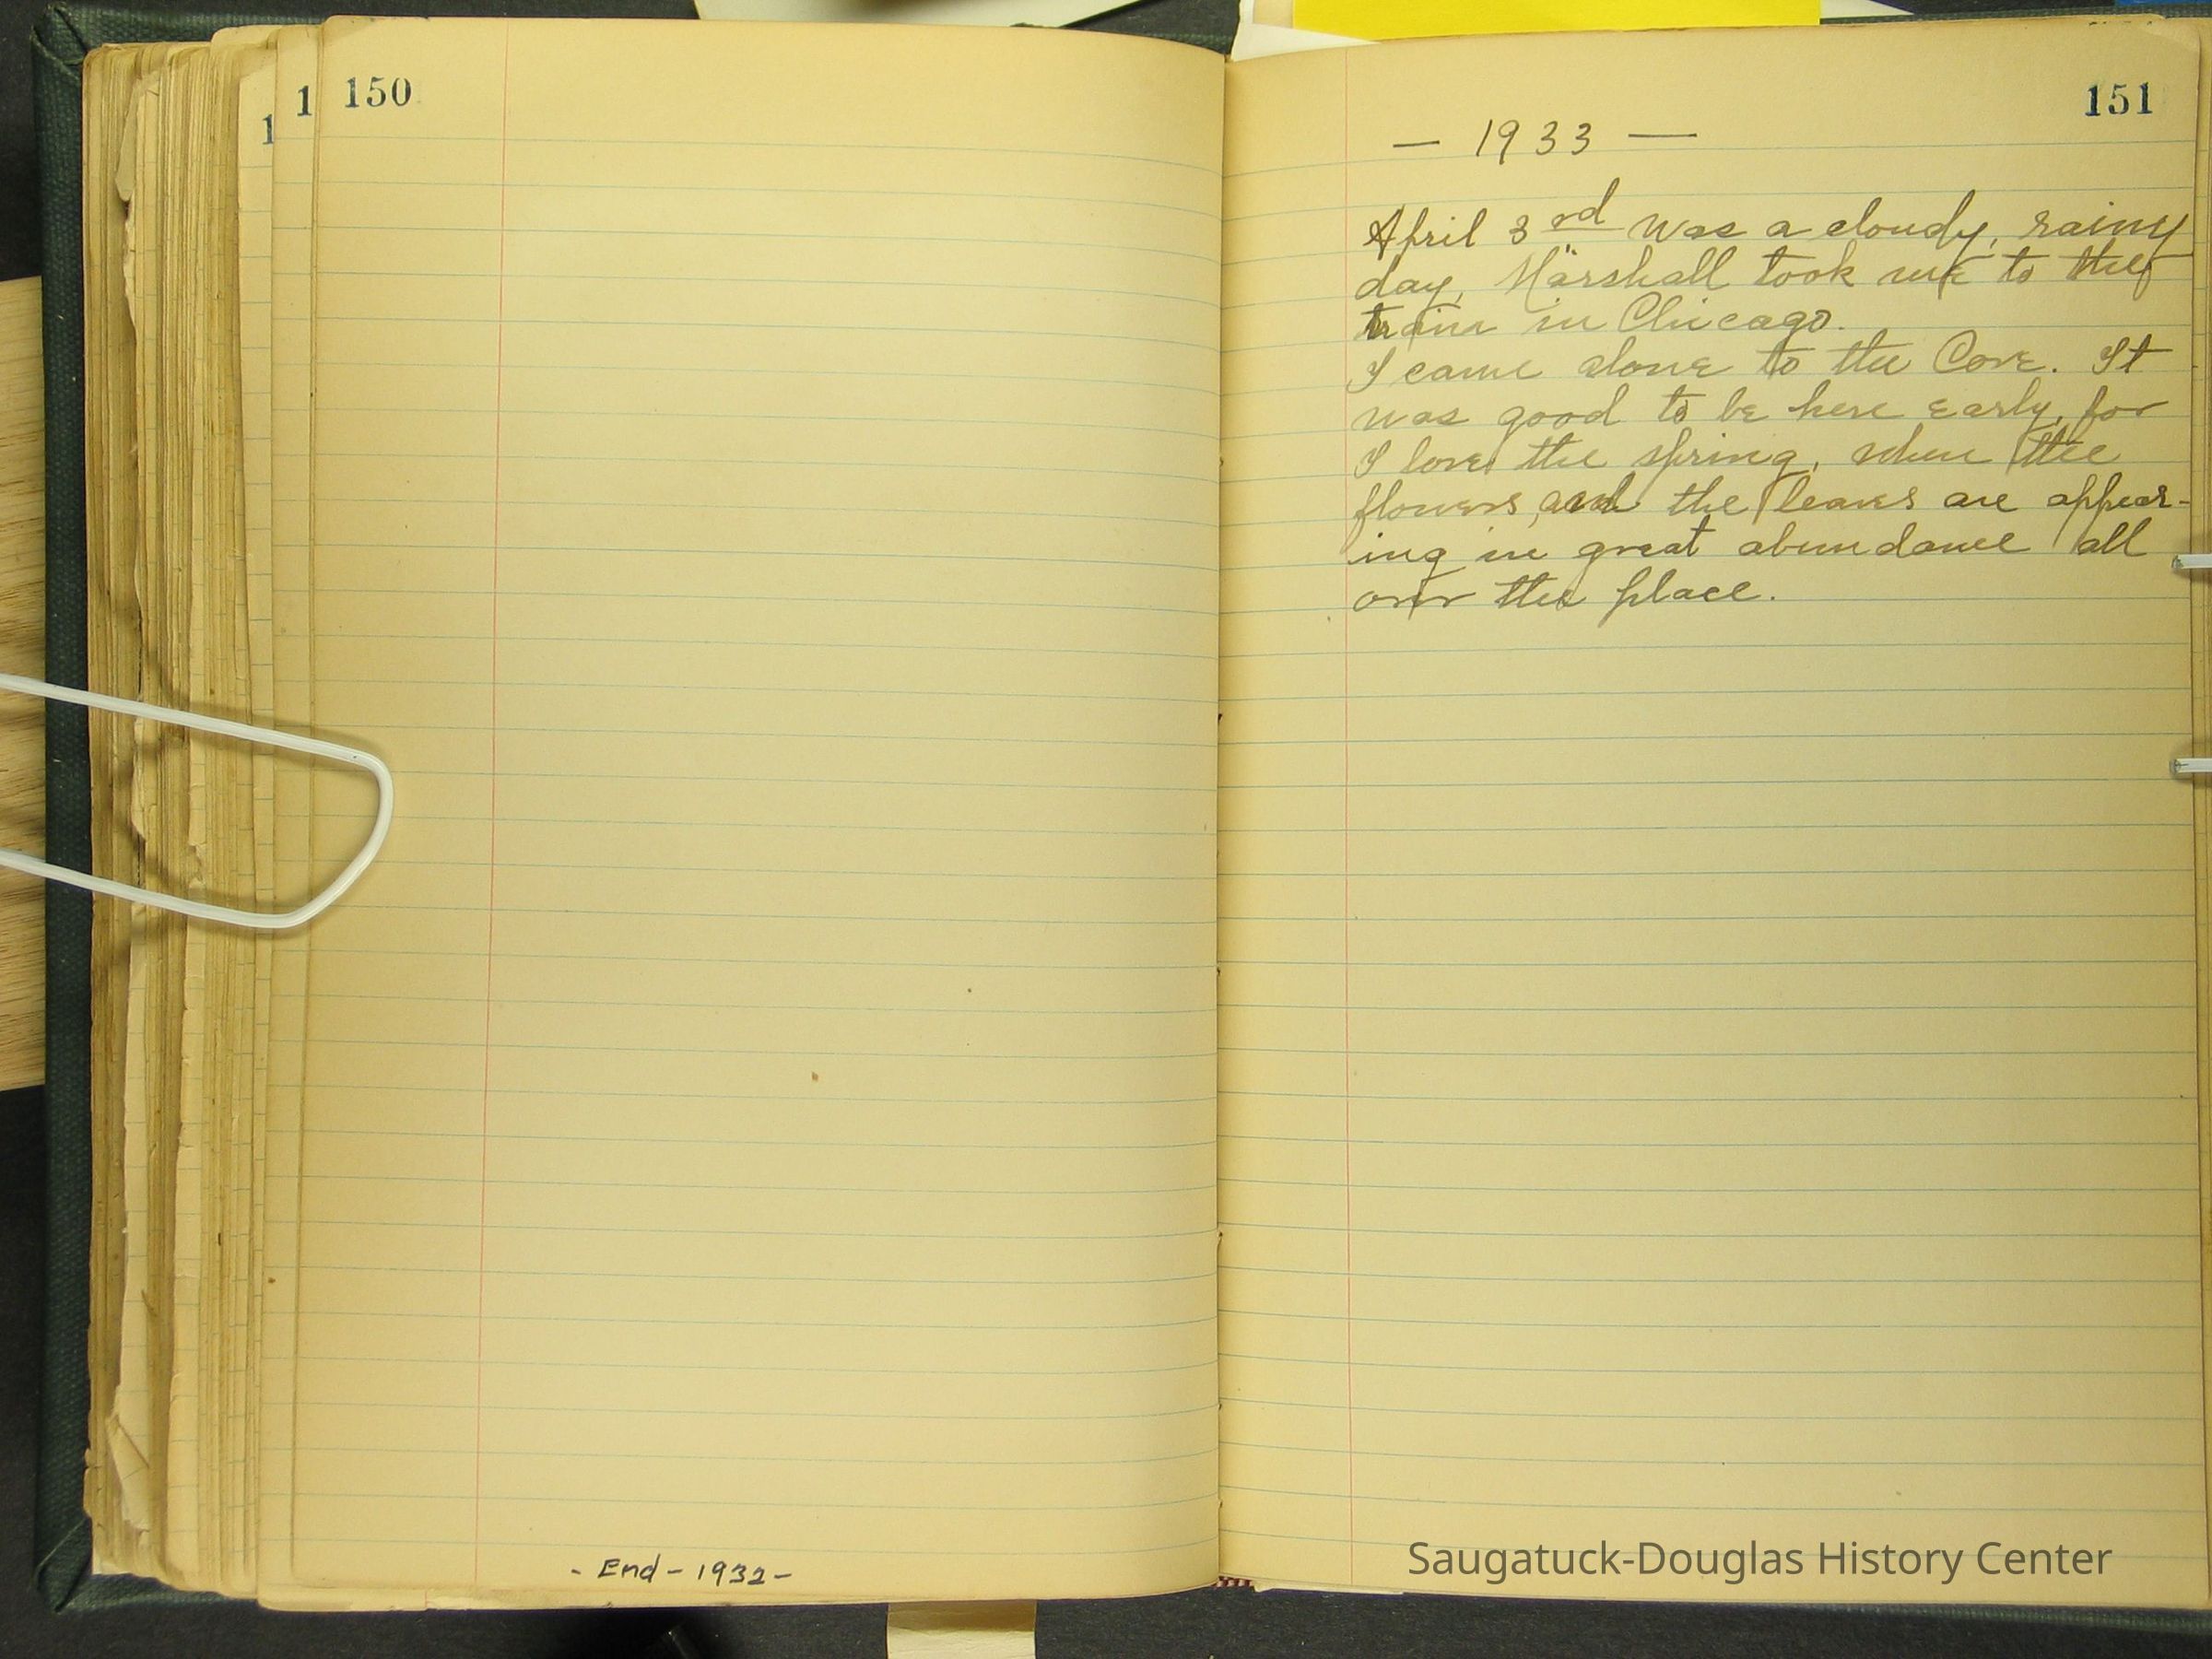 150
- End - 1932 -
151
— 1933 —
April 3rd was a cloudy, rainy
day, Marshall took me to the
train in Chicago.
I came alone to the Cove. It
was good to be here early, for
I love the spring, when the
flowers, and the leaves are appear-
ing in great abundance all
over the place.
Saugatuck-Douglas History Center